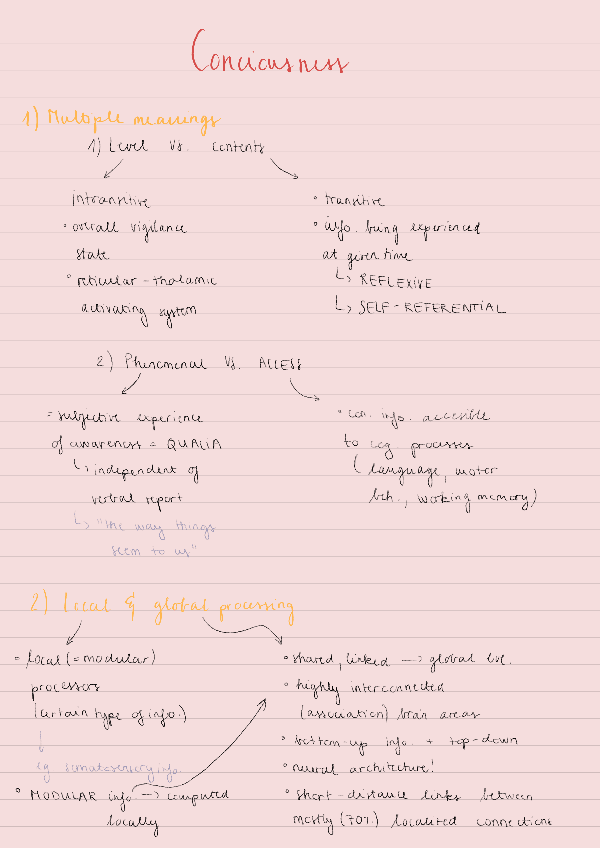 Conciousness
1) Multiple meanings
1) Level vs. contents
intransitive
• overall vigilance
state
• reticular-thalamic
activating system
• transitive
• info. being experienced
at given time
↳ REFLEXIVE
↳ SELF-REFERENTIAL
2) Phenomenal vs. ACCESS
= subjective experience
of awareness = QUALIA
↳ independent of
verbal report
↳ "the way things
seem to us"
• con. info. accesible
to cog. processes
(language, motor
beh., working memory)
2) Local & global processing
= local (= modular)
processors
(certain type of info.)
↓
eg somatosensory info.
• MODULAR info. → computed
locally
• shared, linked → global lvl.
• highly interconnected
(association) brain areas
• bottom-up info. + top-down
• neural architecture!
• short-distance links between
mostly (70%) localized connections